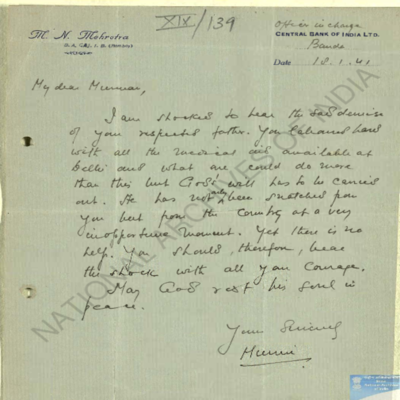 XIX/139
M. N. Mehrotra
Officer in charge
CENTRAL BANK OF INDIA LTD.
Banda
Date 18.1.41
My dear
I am shocked to hear the sad demise
of your respected father. You laboured hard
with all the medical aid available at
Delhi and what one could do more
than this but God's will has to be carried
out. He has not only been snatched from
you but from the Country at a very
inopportune moment. Yet there is no
help. You should, therefore, bear
the shock with all your courage.
May God rest his soul in
peace.
Yours Sincerely
NATIONAL ARCHIVES OF INDIA